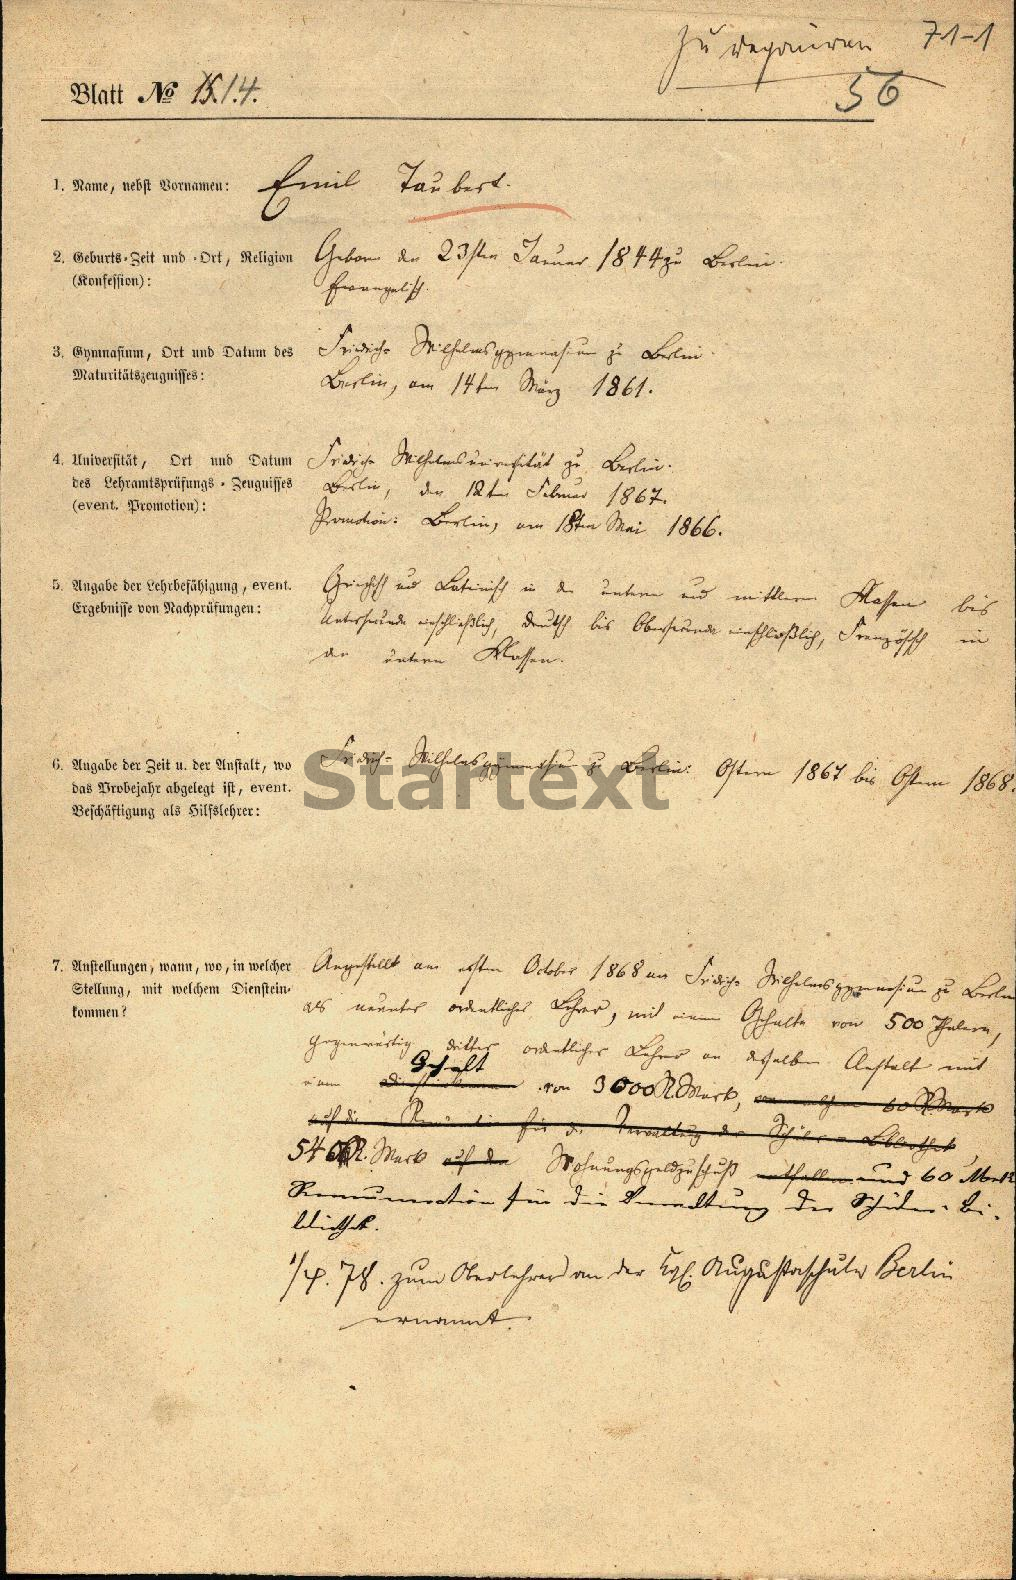 71-1
56
Blatt № 15. 14.
1. Name, nebst Vornamen: Emil Taubert.
2. Geburts-Zeit und -Ort, Religion (Konfession):
Geboren den 23sten Januar 1844 zu Berlin.
Evangelisch.
3. Gymnasium, Ort und Datum des Maturitätszeugnisses:
Friedrich-Wilhelmsgymnasium zu Berlin.
Berlin, am 14ten März 1861.
4. Universität, Ort und Datum des Lehramtsprüfungs-Zeugnisses (event. Promotion):
Friedrich-Wilhelmsuniversität zu Berlin.
Berlin, den 12ten Februar 1867.
Promotion: Berlin, am 18ten Mai 1866.
5. Angabe der Lehrbefähigung, event. Ergebnisse von Nachprüfungen:
Griechisch und Lateinisch in den untern und mittleren Klassen bis
Untersecunda einschließlich, deutsch bis Obersecunda einschließlich, Französisch in
den untern Klassen.
6. Angabe der Zeit u. der Anstalt, wo das Probejahr abgelegt ist, event. Beschäftigung als Hilfslehrer:
Friedrich-Wilhelmsgymnasium zu Berlin: Ostern 1867 bis Ostern 1868.
Startext
7. Anstellungen, wann, wo, in welcher Stellung, mit welchem Diensteinkommen?
Angestellt am ersten October 1868 am Friedrich-Wilhelmsgymnasium zu Berlin
als neunter ordentlicher Lehrer, mit einem Gehalte von 500 Thalern,
gegenwärtig dritter ordentlicher Lehrer an derselben Anstalt mit
Gehalt
einem von 3000 R. Mark, 60 R. Mark
auf die für die Verwaltung der Schüler-Bibliothek
540 R. Mark auf den Wohnungsgeldzuschuß entfallen und 60 Mark
Remuneration für die Verwaltung der Schüler-Bi-
bliothek.
1/4. 78. zum Oberlehrer an der Kgl. Augustaschule Berlin
ernannt.